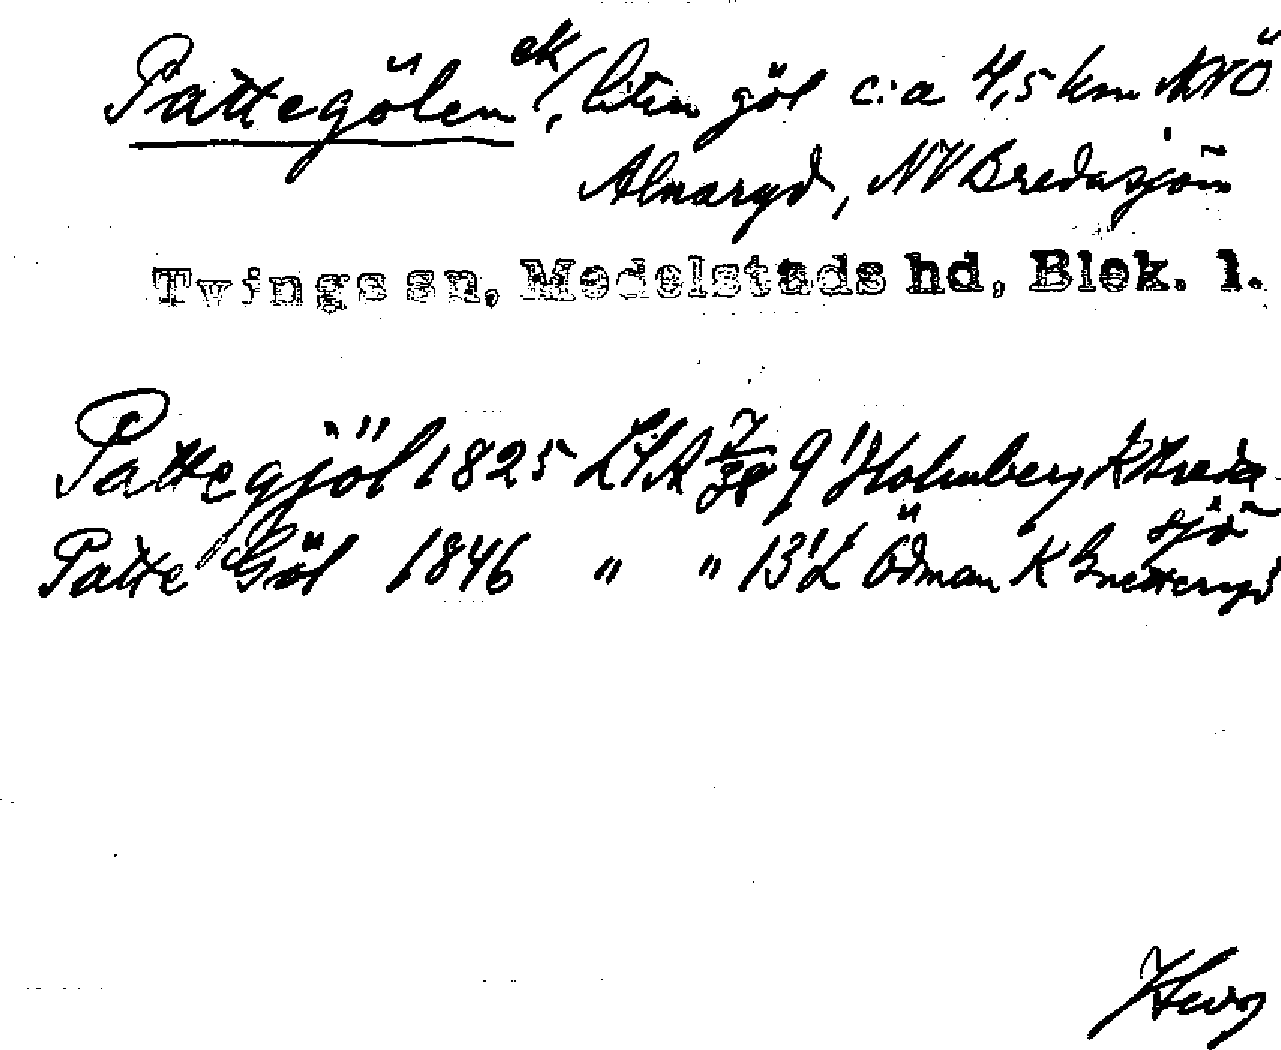 Pattegölen ek, liten göl c:a 4,5 km NNÖ
Alnaryd, NV Bredasjön
Tvings sn, Medelstads hd, Blek. l.
Pattegjöl 1825 LSA 7/38 9 Holmberg K Breda
sjö
Patte Göl 1846 " " 13 L Ödman K Gnetteryd